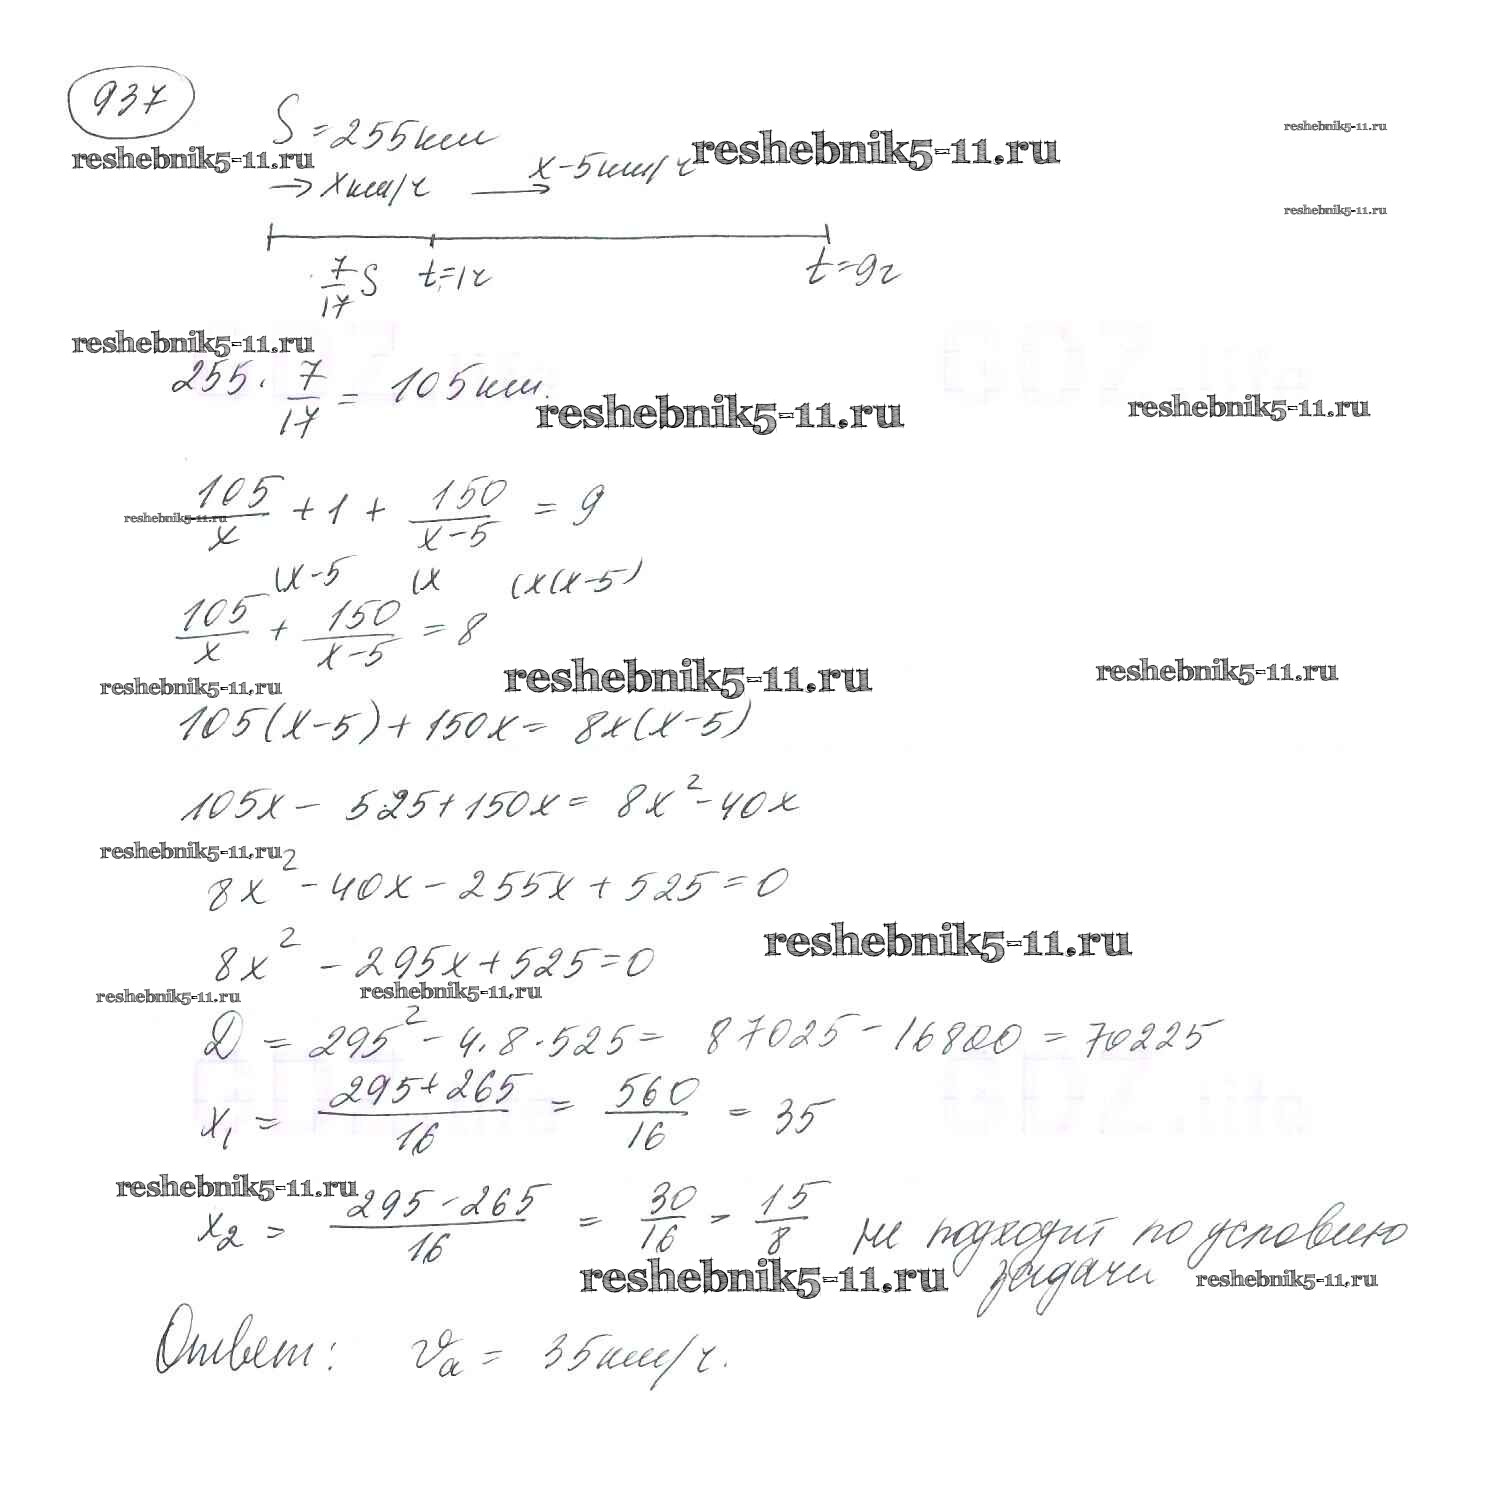 937
S = 255км
reshebnik5-11.ru reshebnik5-11.ru reshebnik5-11.ru
→ x км/ч → x-5км/ч
reshebnik5-11.ru
7/17 S t=1ч t=9ч
reshebnik5-11.ru
255 · 7/17 = 105 км.
reshebnik5-11.ru reshebnik5-11.ru
105/x + 1 + 150/(x-5) = 9
reshebnik5-11.ru
(x-5 (x (x(x-5)
105/x + 150/(x-5) = 8
reshebnik5-11.ru reshebnik5-11.ru reshebnik5-11.ru
105(x-5)+150x= 8x(x-5)
105x - 525+150x= 8x²-40x
reshebnik5-11.ru
8x² - 40x - 255x + 525 = 0
reshebnik5-11.ru
8x² - 295x + 525 = 0
reshebnik5-11.ru reshebnik5-11.ru
D = 295² - 4·8·525 = 87025 - 16800 = 70225
x₁ = (295+265)/16 = 560/16 = 35
reshebnik5-11.ru
x₂ = (295-265)/16 = 30/16 = 15/8 не подходит по условию
задачи
reshebnik5-11.ru reshebnik5-11.ru
Ответ: vₐ = 35км/ч.